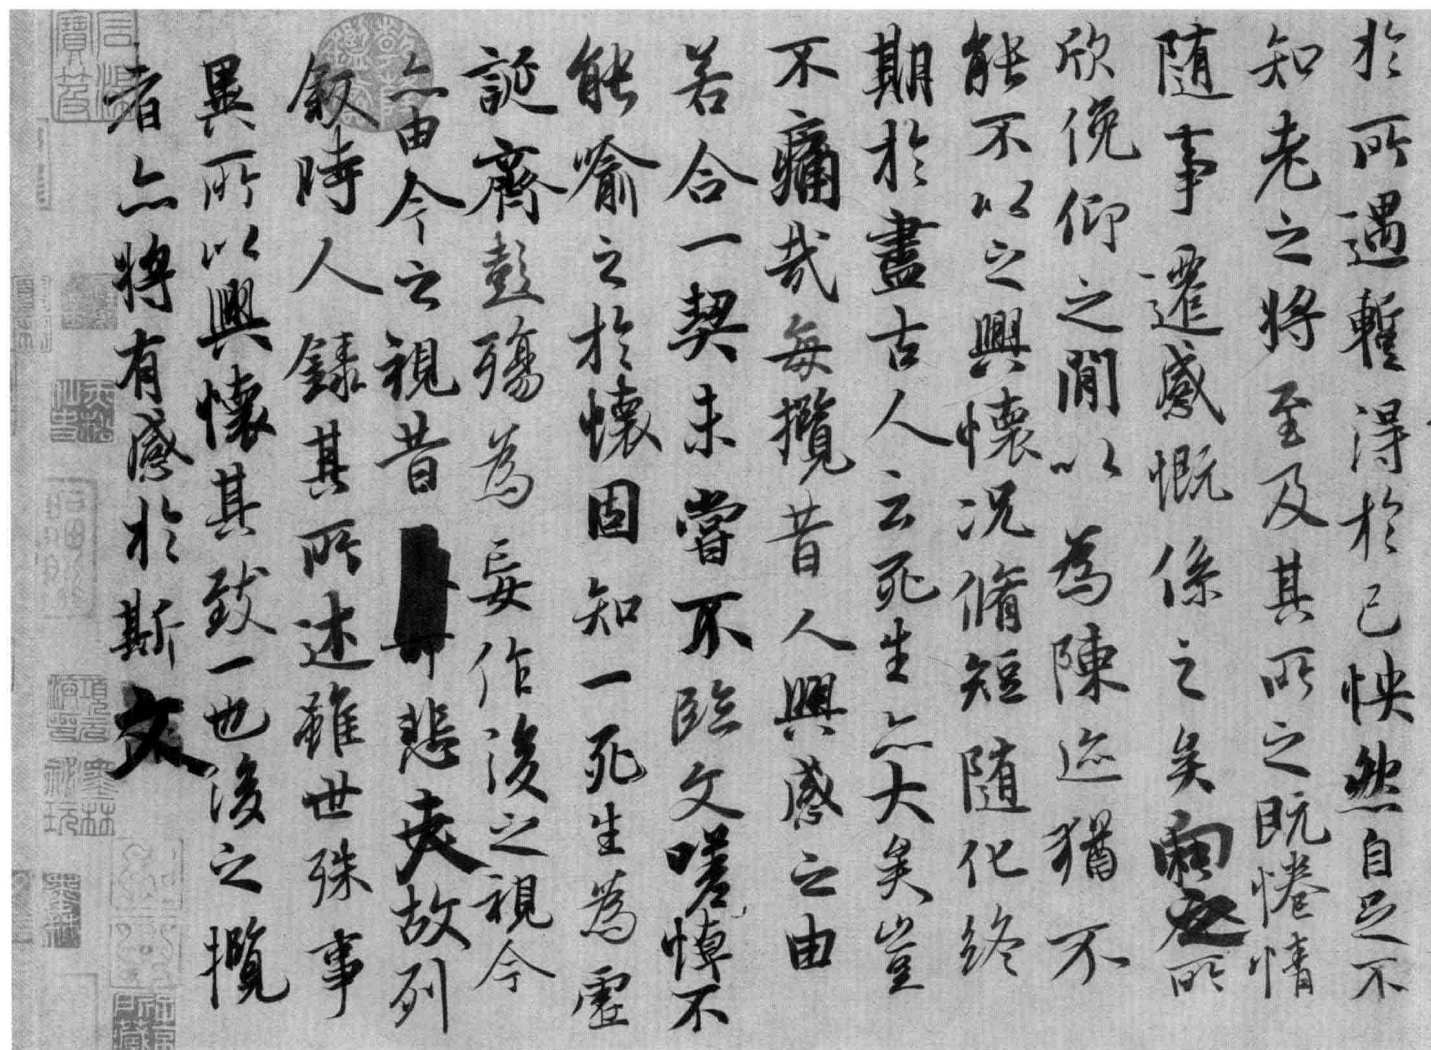 於所遇蹔得於己怏然自足不
知老之將至及其所之既惓情
随事遷感慨係之矣向之所
欣俛仰之閒以為陳迹猶不
能不以之興懷況脩短随化終
期於盡古人云死生亦大矣豈
不痛哉每攬昔人興感之由
若合一契未嘗不臨文嗟悼不
能喻之於懷固知一死生為虛
誕齊彭殤為妄作後之視今
亦由今之視昔悲夫故列
敘時人錄其所述雖世殊事
異所以興懷其致一也後之攬
者亦將有感於斯文